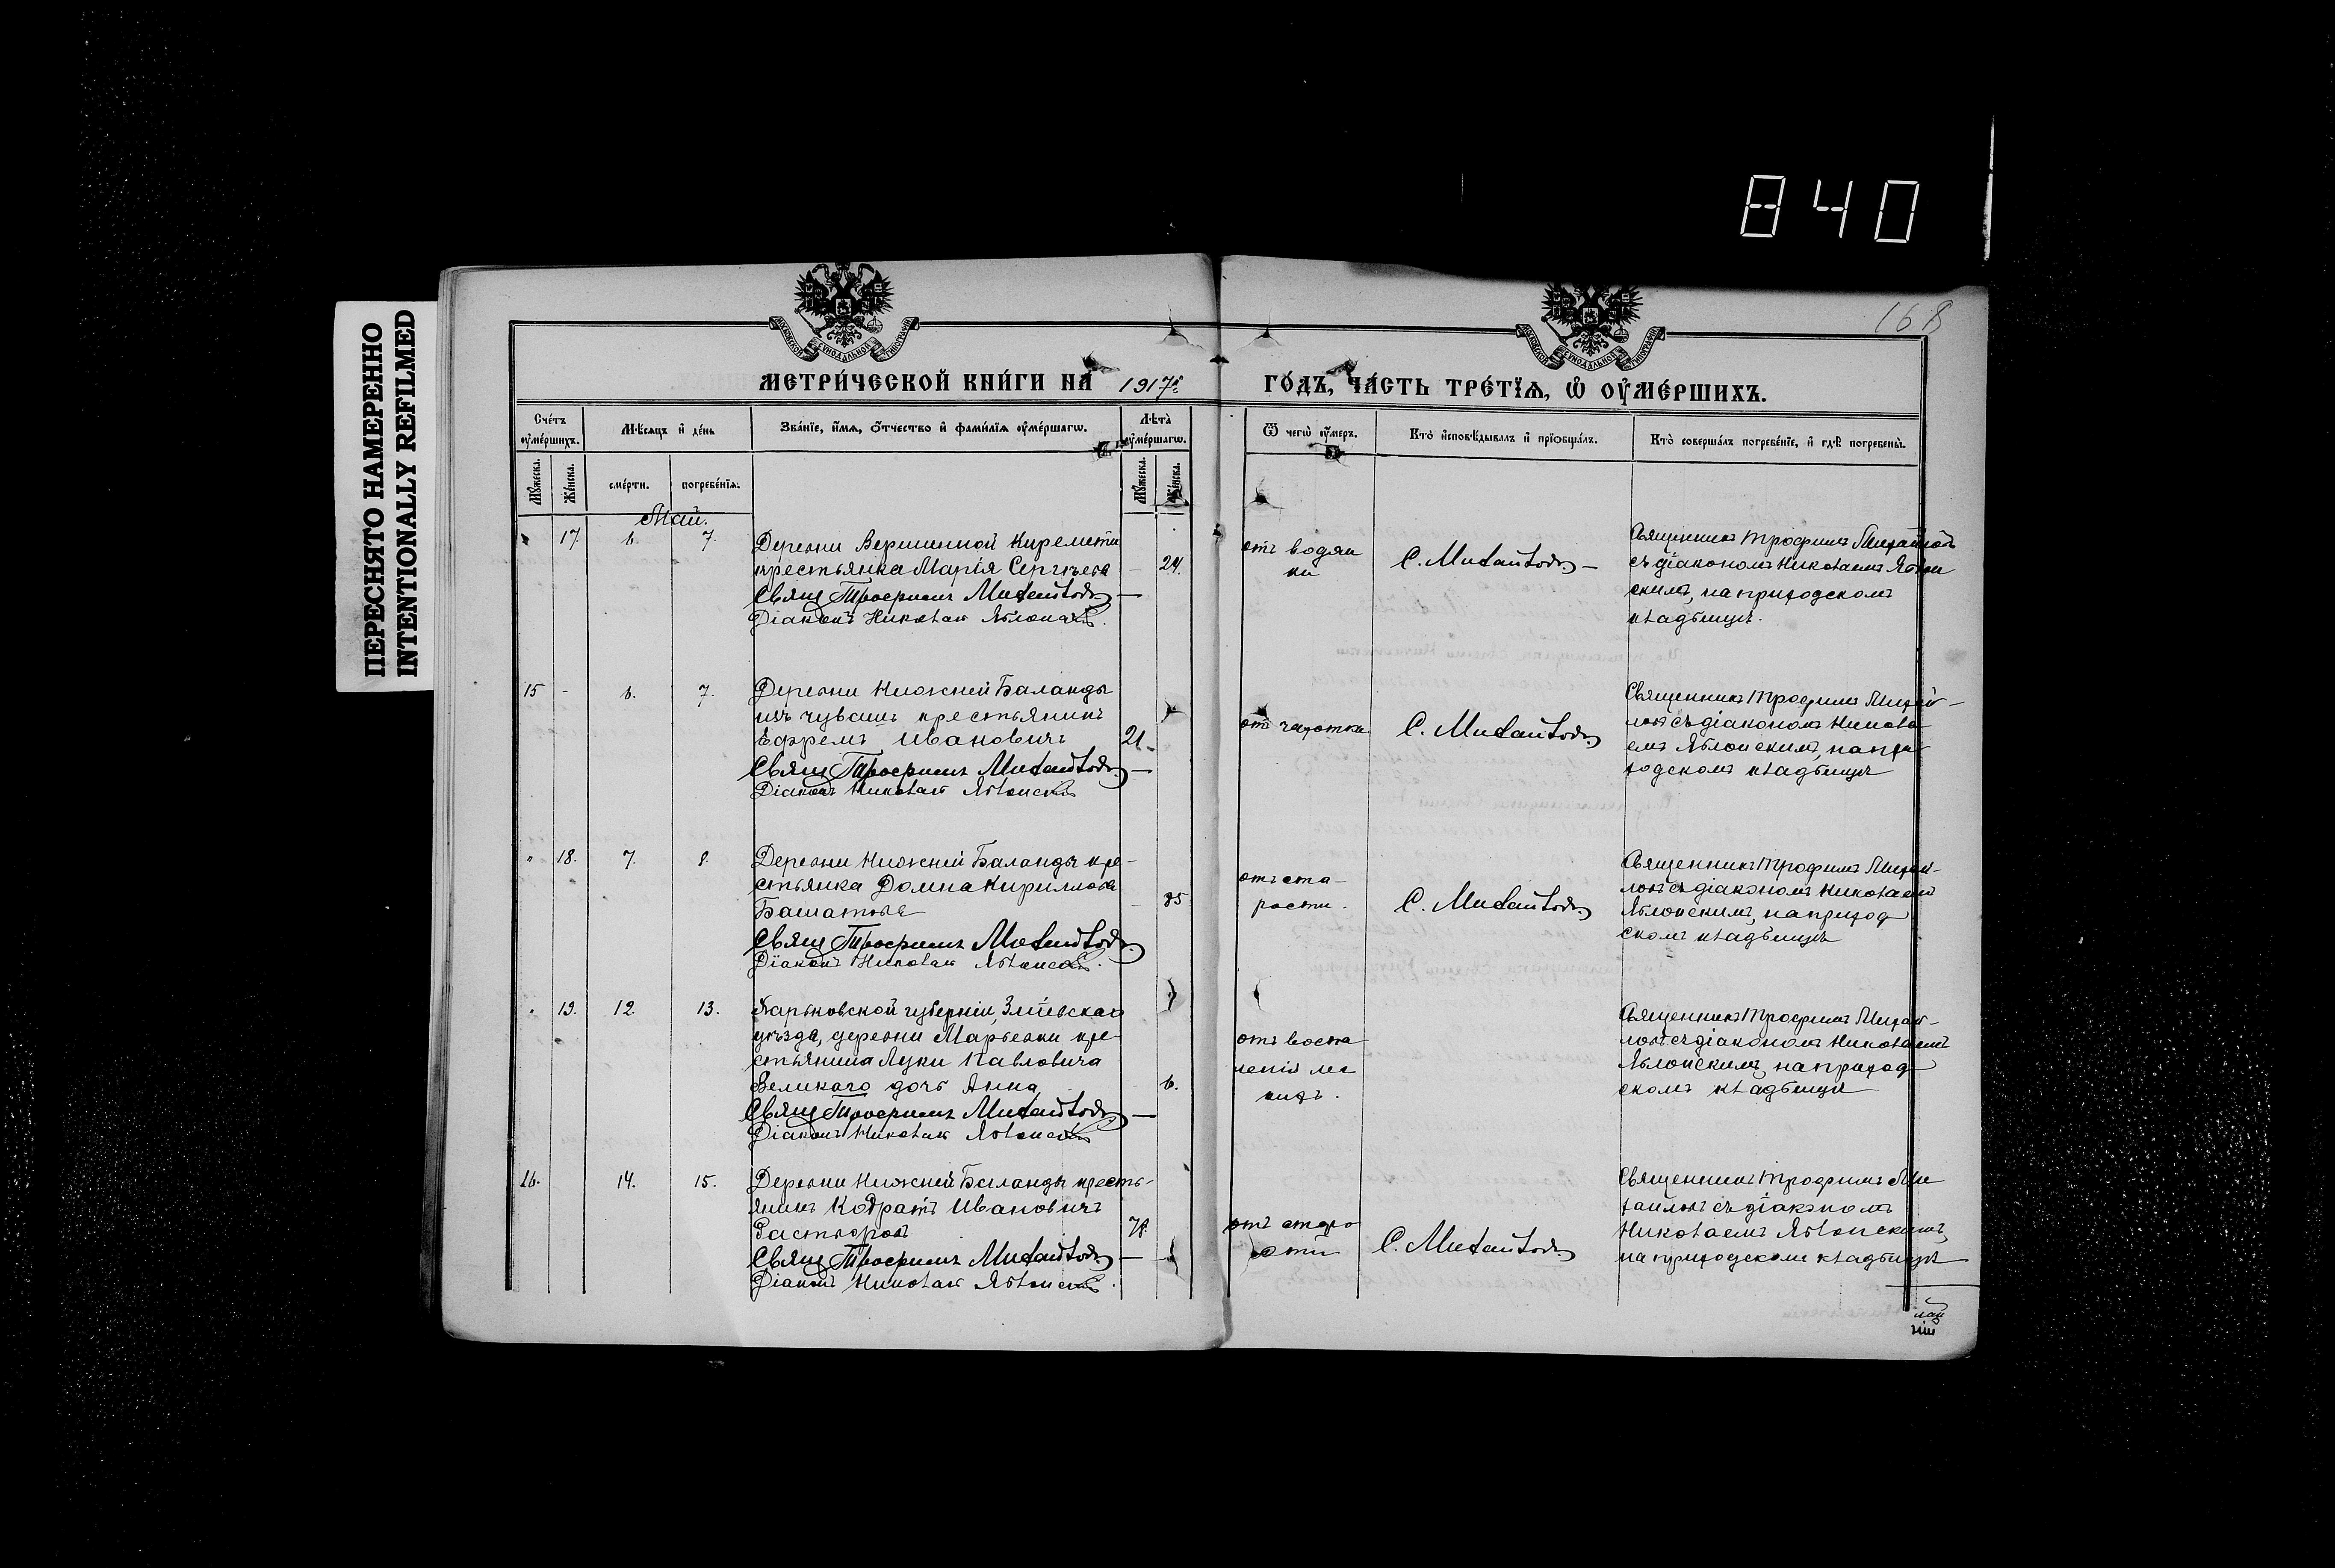 840
ПЕРЕСНЯТО НАМЕРЕННО
INTENTIONALLY REFILMED
168
МЕТРИ́ЧЕСКОЙ КНИ́ГИ НА 1917 г. ГО́ДЪ, ЧА́СТЬ ТРЕ́ТІѦ, Ѡ҆ ОУ҆МЕ́РШИХЪ.
Сче́тъ оу҆ме́ршихъ.
Мѣ́сяцъ и҆ де́нь
Зва́нїе, и҆́мѧ, ѻ҆́тчество и҆ фами́лїѧ оу҆ме́ршагѡ.
Лѣ́та оу҆ме́ршагѡ.
Ѿ чегѡ̀ оу҆́меръ.
Кто̀ и҆сповѣ́дывалъ и҆ прїѡбща́лъ.
Кто̀ соверша́лъ погребе́нїе, и҆ гдѣ̀ погребены̀.
Мꙋ́жеска.
Же́нска.
сме́рти.
погребе́нїѧ.
Мꙋ́жеска.
Же́нска.
Май.
17. 6. 7.
Деревни Вершинной Киремети
крестьянка Марія Сергѣева
24.
Свящ Трофимъ Михайловъ
Діаконъ Николай Яблонскій.
отъ водян
ки
С. Михайловъ
Священникъ Трофимъ Михайловъ
съ діакономъ Николаемъ Яблон
скимъ, на приходскомъ
кладбищѣ.
15 - 6. 7.
Деревни Нижней Баланды
изъ чувашъ крестьянинъ
Ефремъ Ивановичъ
21.
Свящ Трофимъ Михайловъ
Діаконъ Николай Яблонскій
отъ чахотки
С. Михайловъ
Священникъ Трофимъ Михай-
ловъ съ діакономъ Никола
емъ Яблонскимъ, на при
ходскомъ кладбищѣ
" 18. 7. 8.
Деревни Нижней Баланды кре-
стьянка Домна Кириллова
85
Свящ Трофимъ Михайловъ
Діаконъ Николай Яблонскій.
отъ ста-
рости.
С. Михайловъ
Священникъ Трофимъ Михай-
ловъ съ діакономъ Николаемъ
Яблонскимъ, на приход
скомъ кладбищѣ
19. 12. 13.
Харьковской губерніи, Зміевскаго
уѣзда, деревни Марьевки кре-
стьянина Луки Павловича
Великаго дочь Анна
6.
Свящ Трофимъ Михайловъ
Діаконъ Николай Яблонскій
отъ воспа
ленія ле
кихъ.
Священникъ Трофимъ Михай-
ловъ съ діакономъ Николаемъ
Яблонскимъ, на приход
скомъ кладбищѣ
16. 14. 15.
Деревни Нижней Баланды кресть-
янинъ Кодратъ Ивановичъ
Растворовъ
78.
Свящ Трофимъ Михайловъ
Діаконъ Николай Яблонскій.
отъ старо
сти
С. Михайловъ
Священникъ Трофимъ Ми
хайловъ съ діакономъ
Николаемъ Яблонскимъ,
на приходскомъ кладбищѣ